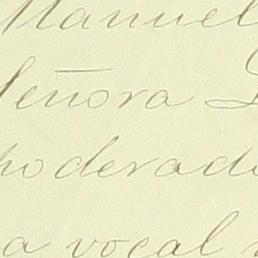 Manuel
Señora
poderado
a vocal